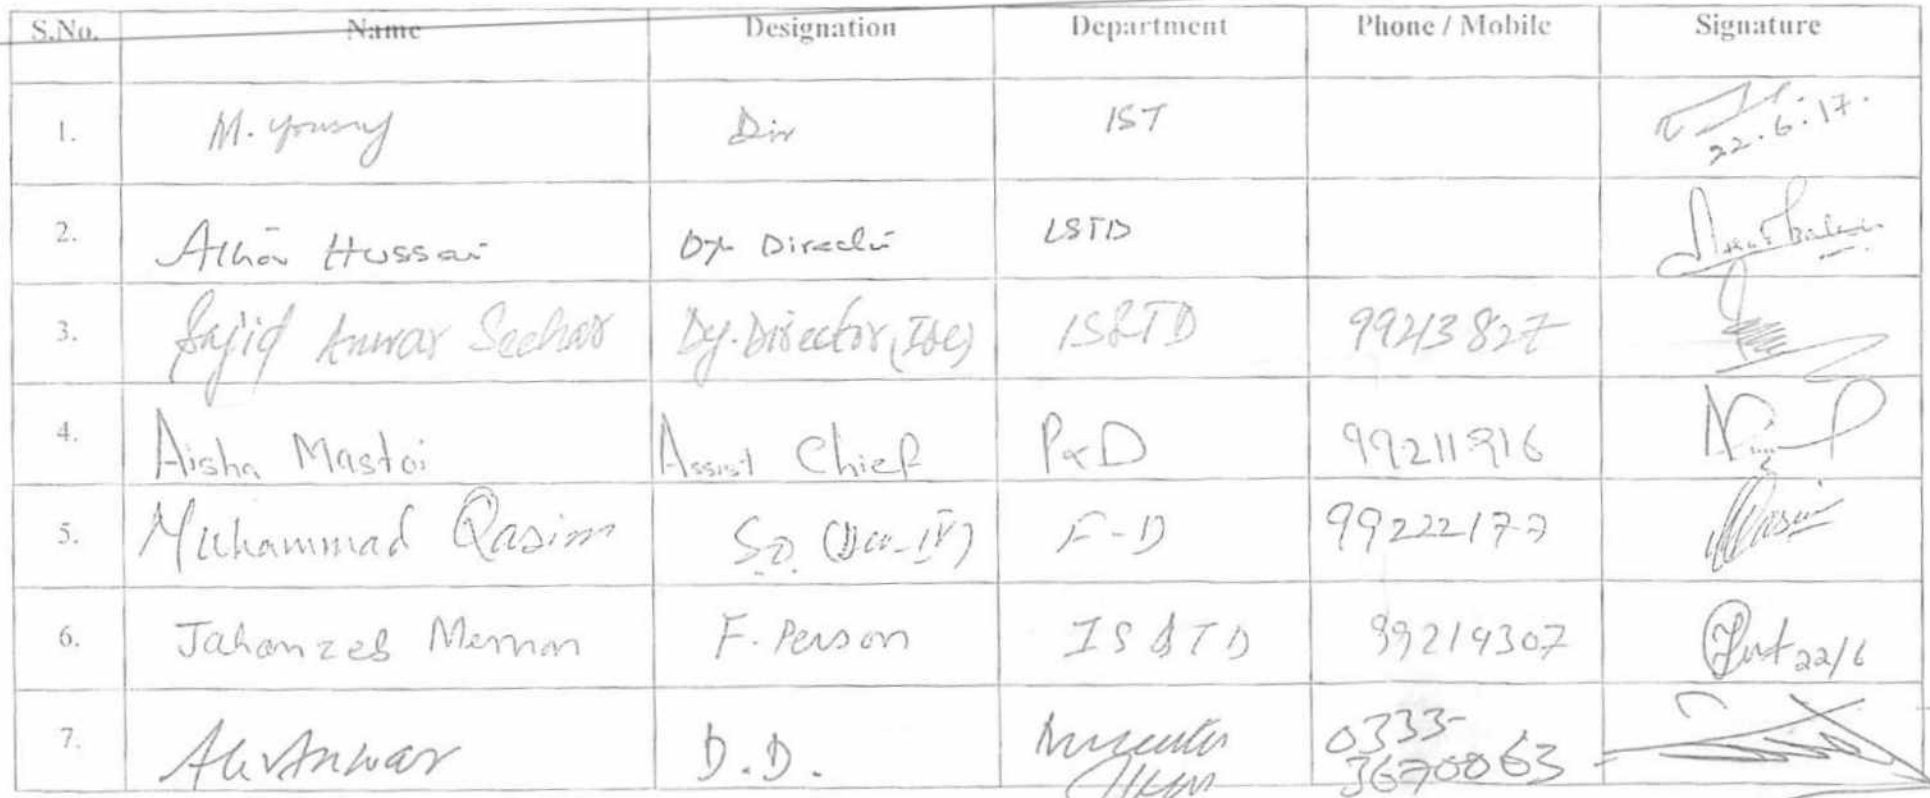 S.No. Name Designation Department Phone / Mobile Signature
1. M. Yousuf Dir IST 22.6.17.
2. Hussain Dy Director ISTD
3. Sajid Anwar Seehar Dy. Director ISTD 99213827
4. Aisha Mastoi Assist Chief P&D 99211916
5. Muhammad Qasim S.O. F-D 99222177
6. Jahanzeb Memon F. Person IS&TD 99219307 22/6
7. Ali Anwar D.D. 0333-
3670063